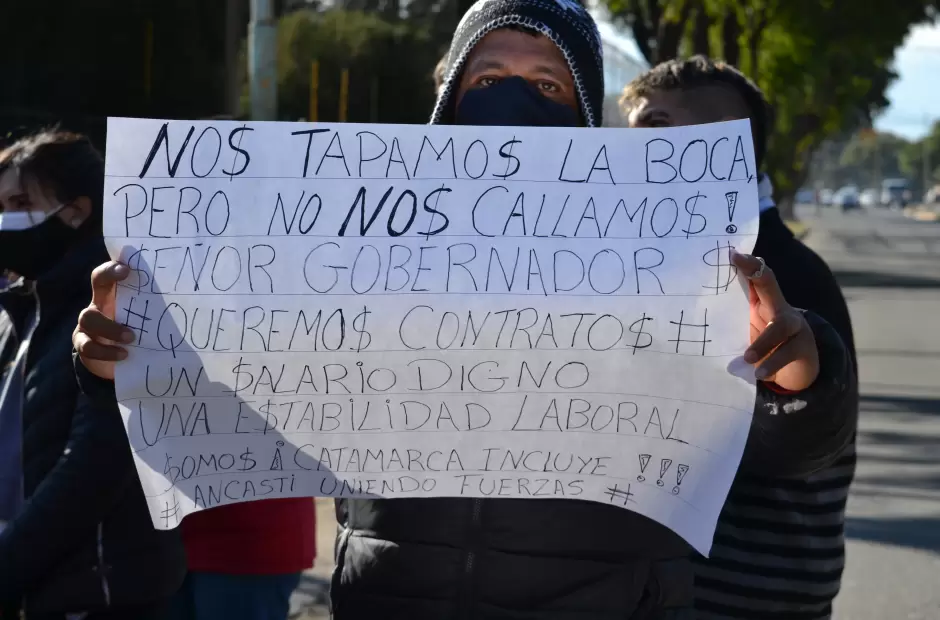 NO$ TAPAMO$ LA BOCA,
PERO NO NO$ CALLAMO$!
$EÑOR GOBERNADOR $
#QUEREMO$ CONTRATO$ #
UN $ALARIO DIGNO
UNA E$TABILIDAD LABORAL
$OMO$ CATAMARCA INCLUYE !!!
# ANCASTI UNIENDO FUERZAS #